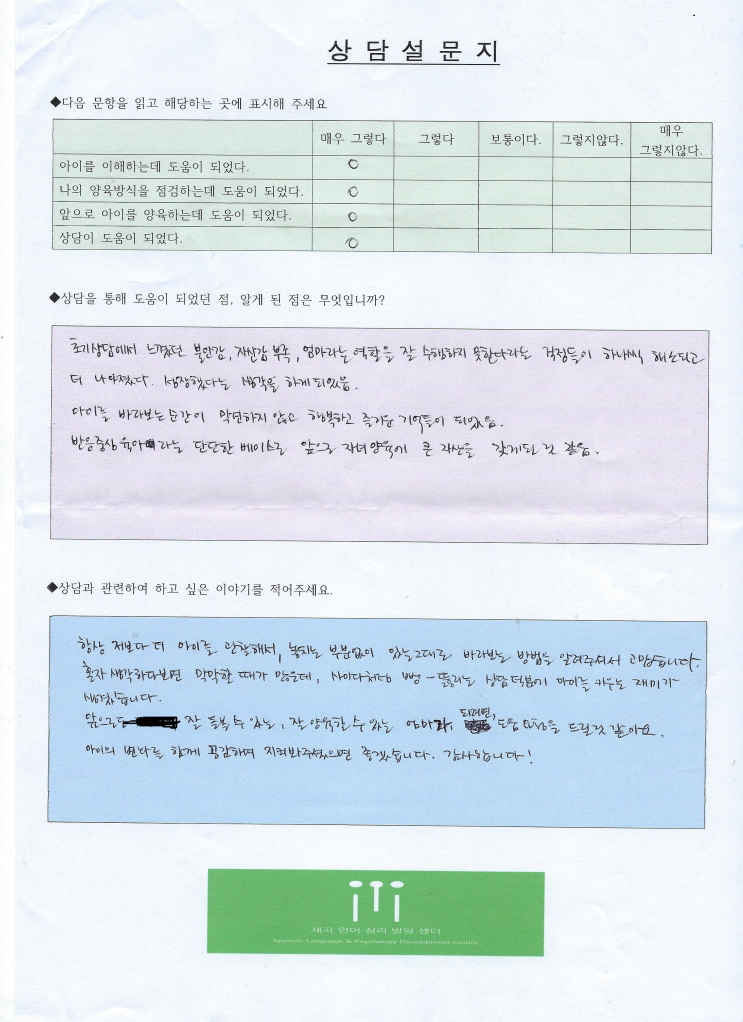 상 담 설 문 지
◆다음 문항을 읽고 해당하는 곳에 표시해 주세요
매우 그렇다 그렇다 보통이다. 그렇지않다. 매우 그렇지않다.
아이를 이해하는데 도움이 되었다. ○
나의 양육방식을 점검하는데 도움이 되었다. ○
앞으로 아이를 양육하는데 도움이 되었다. ○
상담이 도움이 되었다. ○
◆상담을 통해 도움이 되었던 점, 알게 된 점은 무엇입니까?
초기상담에서 느꼈던 불안감, 자신감 부족, 엄마라는 역할을 잘 수행하지 못한다라는 걱정들이 하나씩 해소되고
더 나아졌다. 성장했다는 생각을 하게되었음.
아이를 바라보는 순간이 막연하지 않고 행복하고 즐거운 기억들이 되었음.
반응중심 육아라는 단단한 베이스로 앞으로 자녀양육에 큰 자산을 갖게된 것 같음.
◆상담과 관련하여 하고 싶은 이야기를 적어주세요.
항상 저보다 더 아이를 관찰해서, 놓치는 부분없이 있는그대로 바라보는 방법을 알려주셔서 고맙습니다.
혼자 생각하다보면 막막할 때가 많은데, 사이다처럼 뻥-뚫리는 상담 덕분에 아이를 키우는 재미가
생겼습니다.
앞으로도 잘 돌볼 수 있는, 잘 양육할 수 있는 엄마가 되려면 도움 요청을 드릴것 같아요.
아이의 변화를 함께 공감하며 지켜봐주셨으면 좋겠습니다. 감사합니다!
세곡 언어 심리 발달 센터
Speech-Language & Psychology Development Center